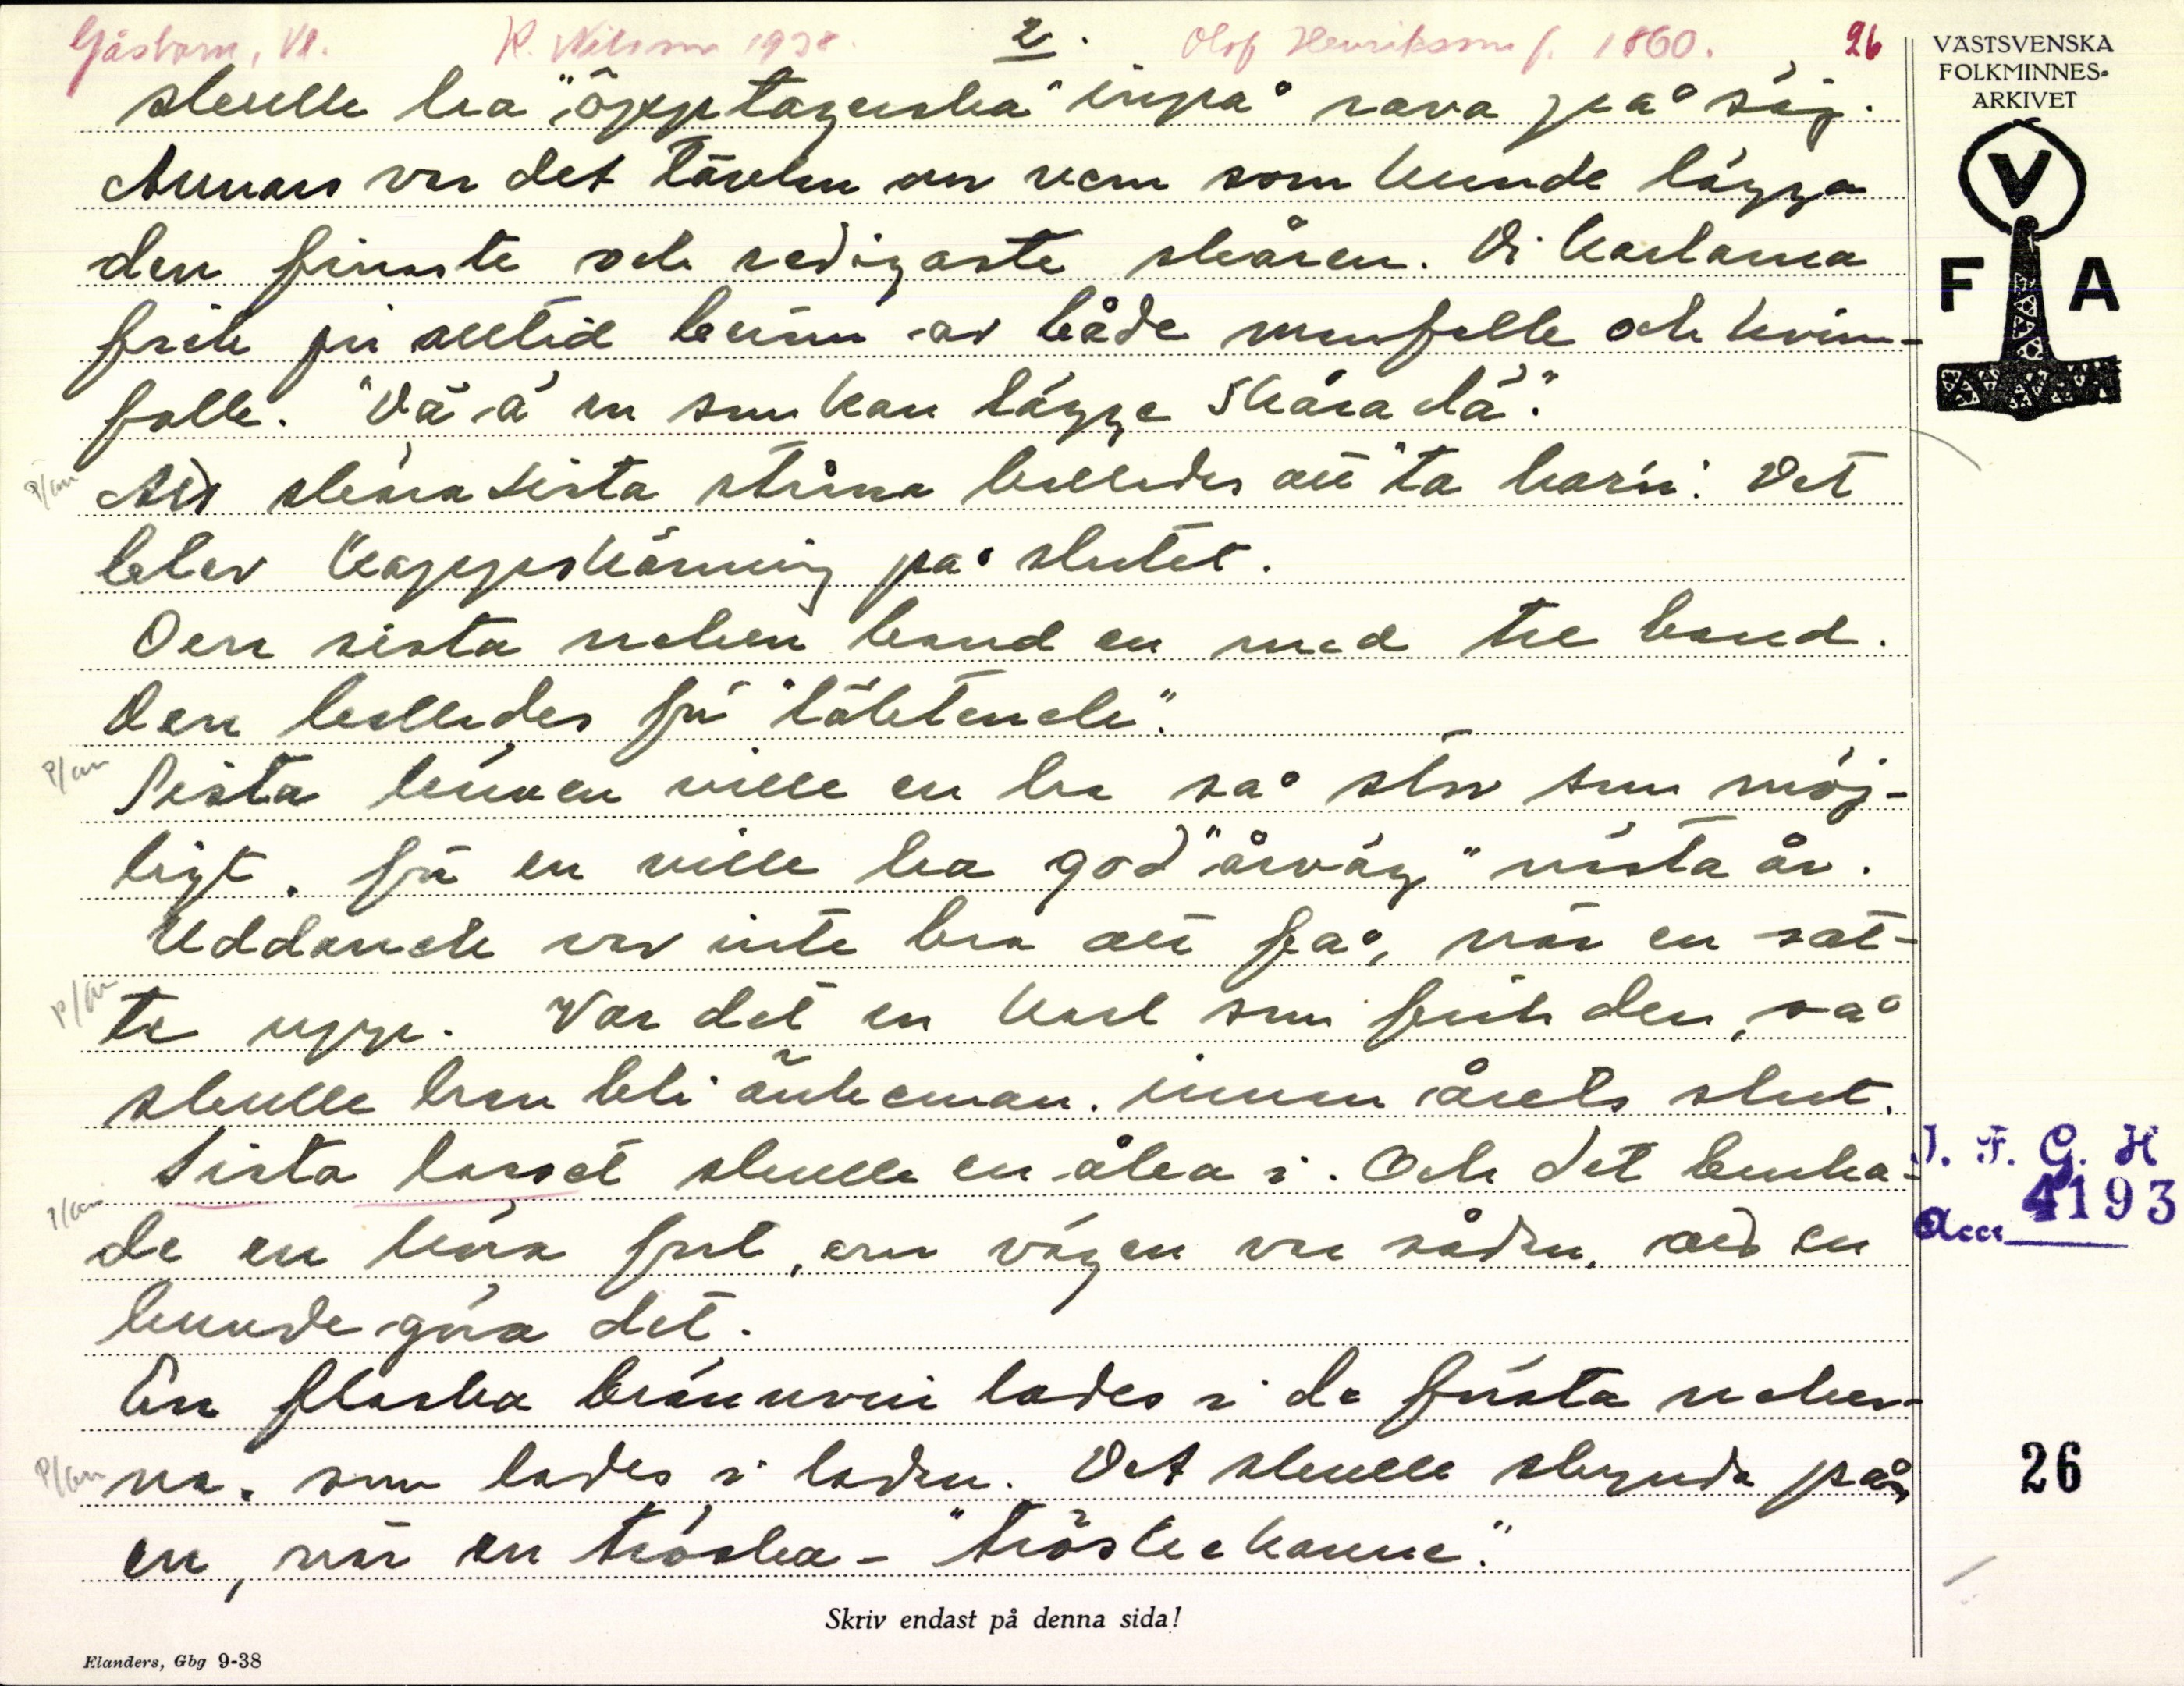 Gåsborn, Vl. K. Nilsson 1938. 2. Olof Henriksson f. 1860. 26
VÄSTSVENSKA
FOLKMINNES-
ARKIVET
V
F A
skulle ha "öpptagerska" inpå rava på sig.
Annars var det tävlan om vem som kunde lägga
den finaste och redigaste skåren. Vi karlarna
fick ju alltid beröm av både manfolk och kvin-
folk. "Dä ä en som kan lägge skåra dä".
Att skära sista stråna kallades att "ta harin". Det
blev kappskärning på slutet.
Den sista neken band en med tre band.
Den kallades för "löktenek".
Sista neken ville en ha så stor som möj-
ligt, för en ville ha god "årväg" nästa år.
Uddanek var inte bra att få, när en sat-
te upp. Var det en karl som fick den, så
skulle han bli änkeman innan årets slut.
Sista lasset skulle en åka i. Och det bruka-
de en köra fort, om vägen var sådan, att en
kunde göra det.
En flaska brännvin lades i de första neker-
na, som lades i ladan. Det skulle skynda på
en, när en tröska - "tröskekanne".
P/an
P/an
P/an
P/an
P/an
I. F. G. H
Acc 4193
26
Skriv endast på denna sida!
Elanders, Gbg 9-38